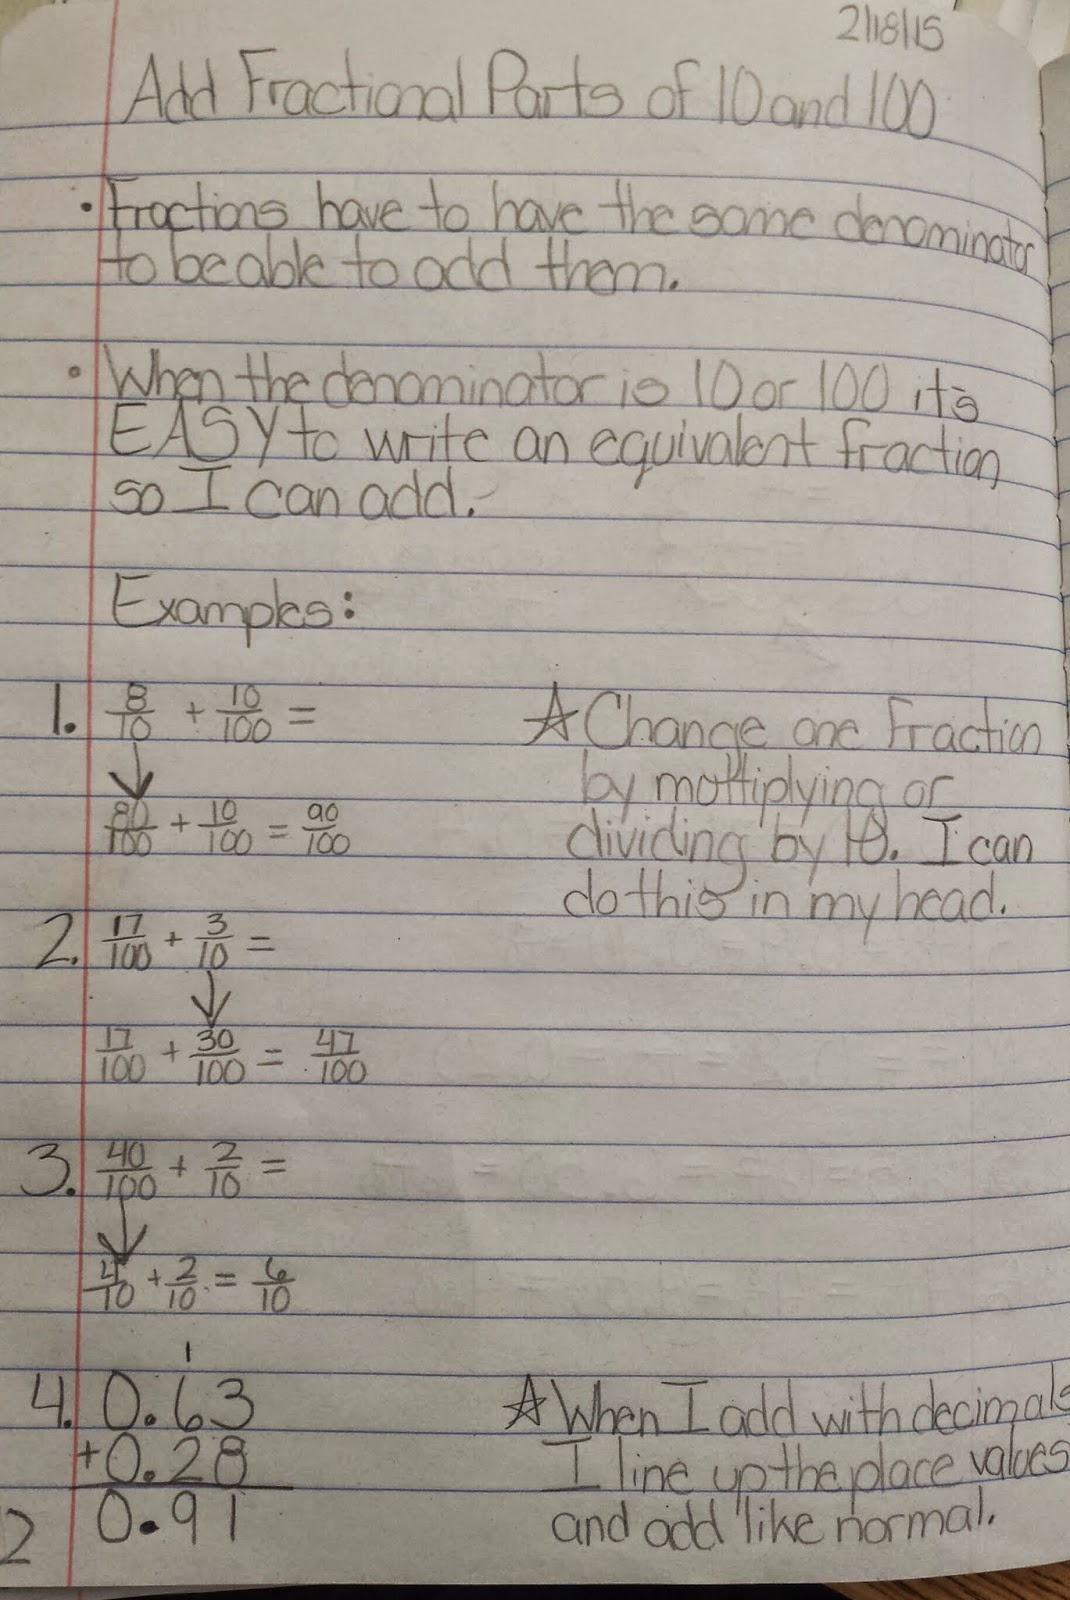 2/18/15
Add Fractional Parts of 10 and 100
• Fractions have to have the same denominator
to be able to add them.
• When the denominator is 10 or 100 it's
EASY to write an equivalent fraction
so I can add.
Examples:
1. 8/10 + 10/100 =
80/100 + 10/100 = 90/100
☆ Change one fraction
by multiplying or
dividing by 10. I can
do this in my head.
2. 17/100 + 3/10 =
17/100 + 30/100 = 47/100
3. 40/100 + 2/10 =
4/10 + 2/10 = 6/10
1
4. 0.63
+0.28
0.91
☆ When I add with decimals
I line up the place values
and add like normal.
2